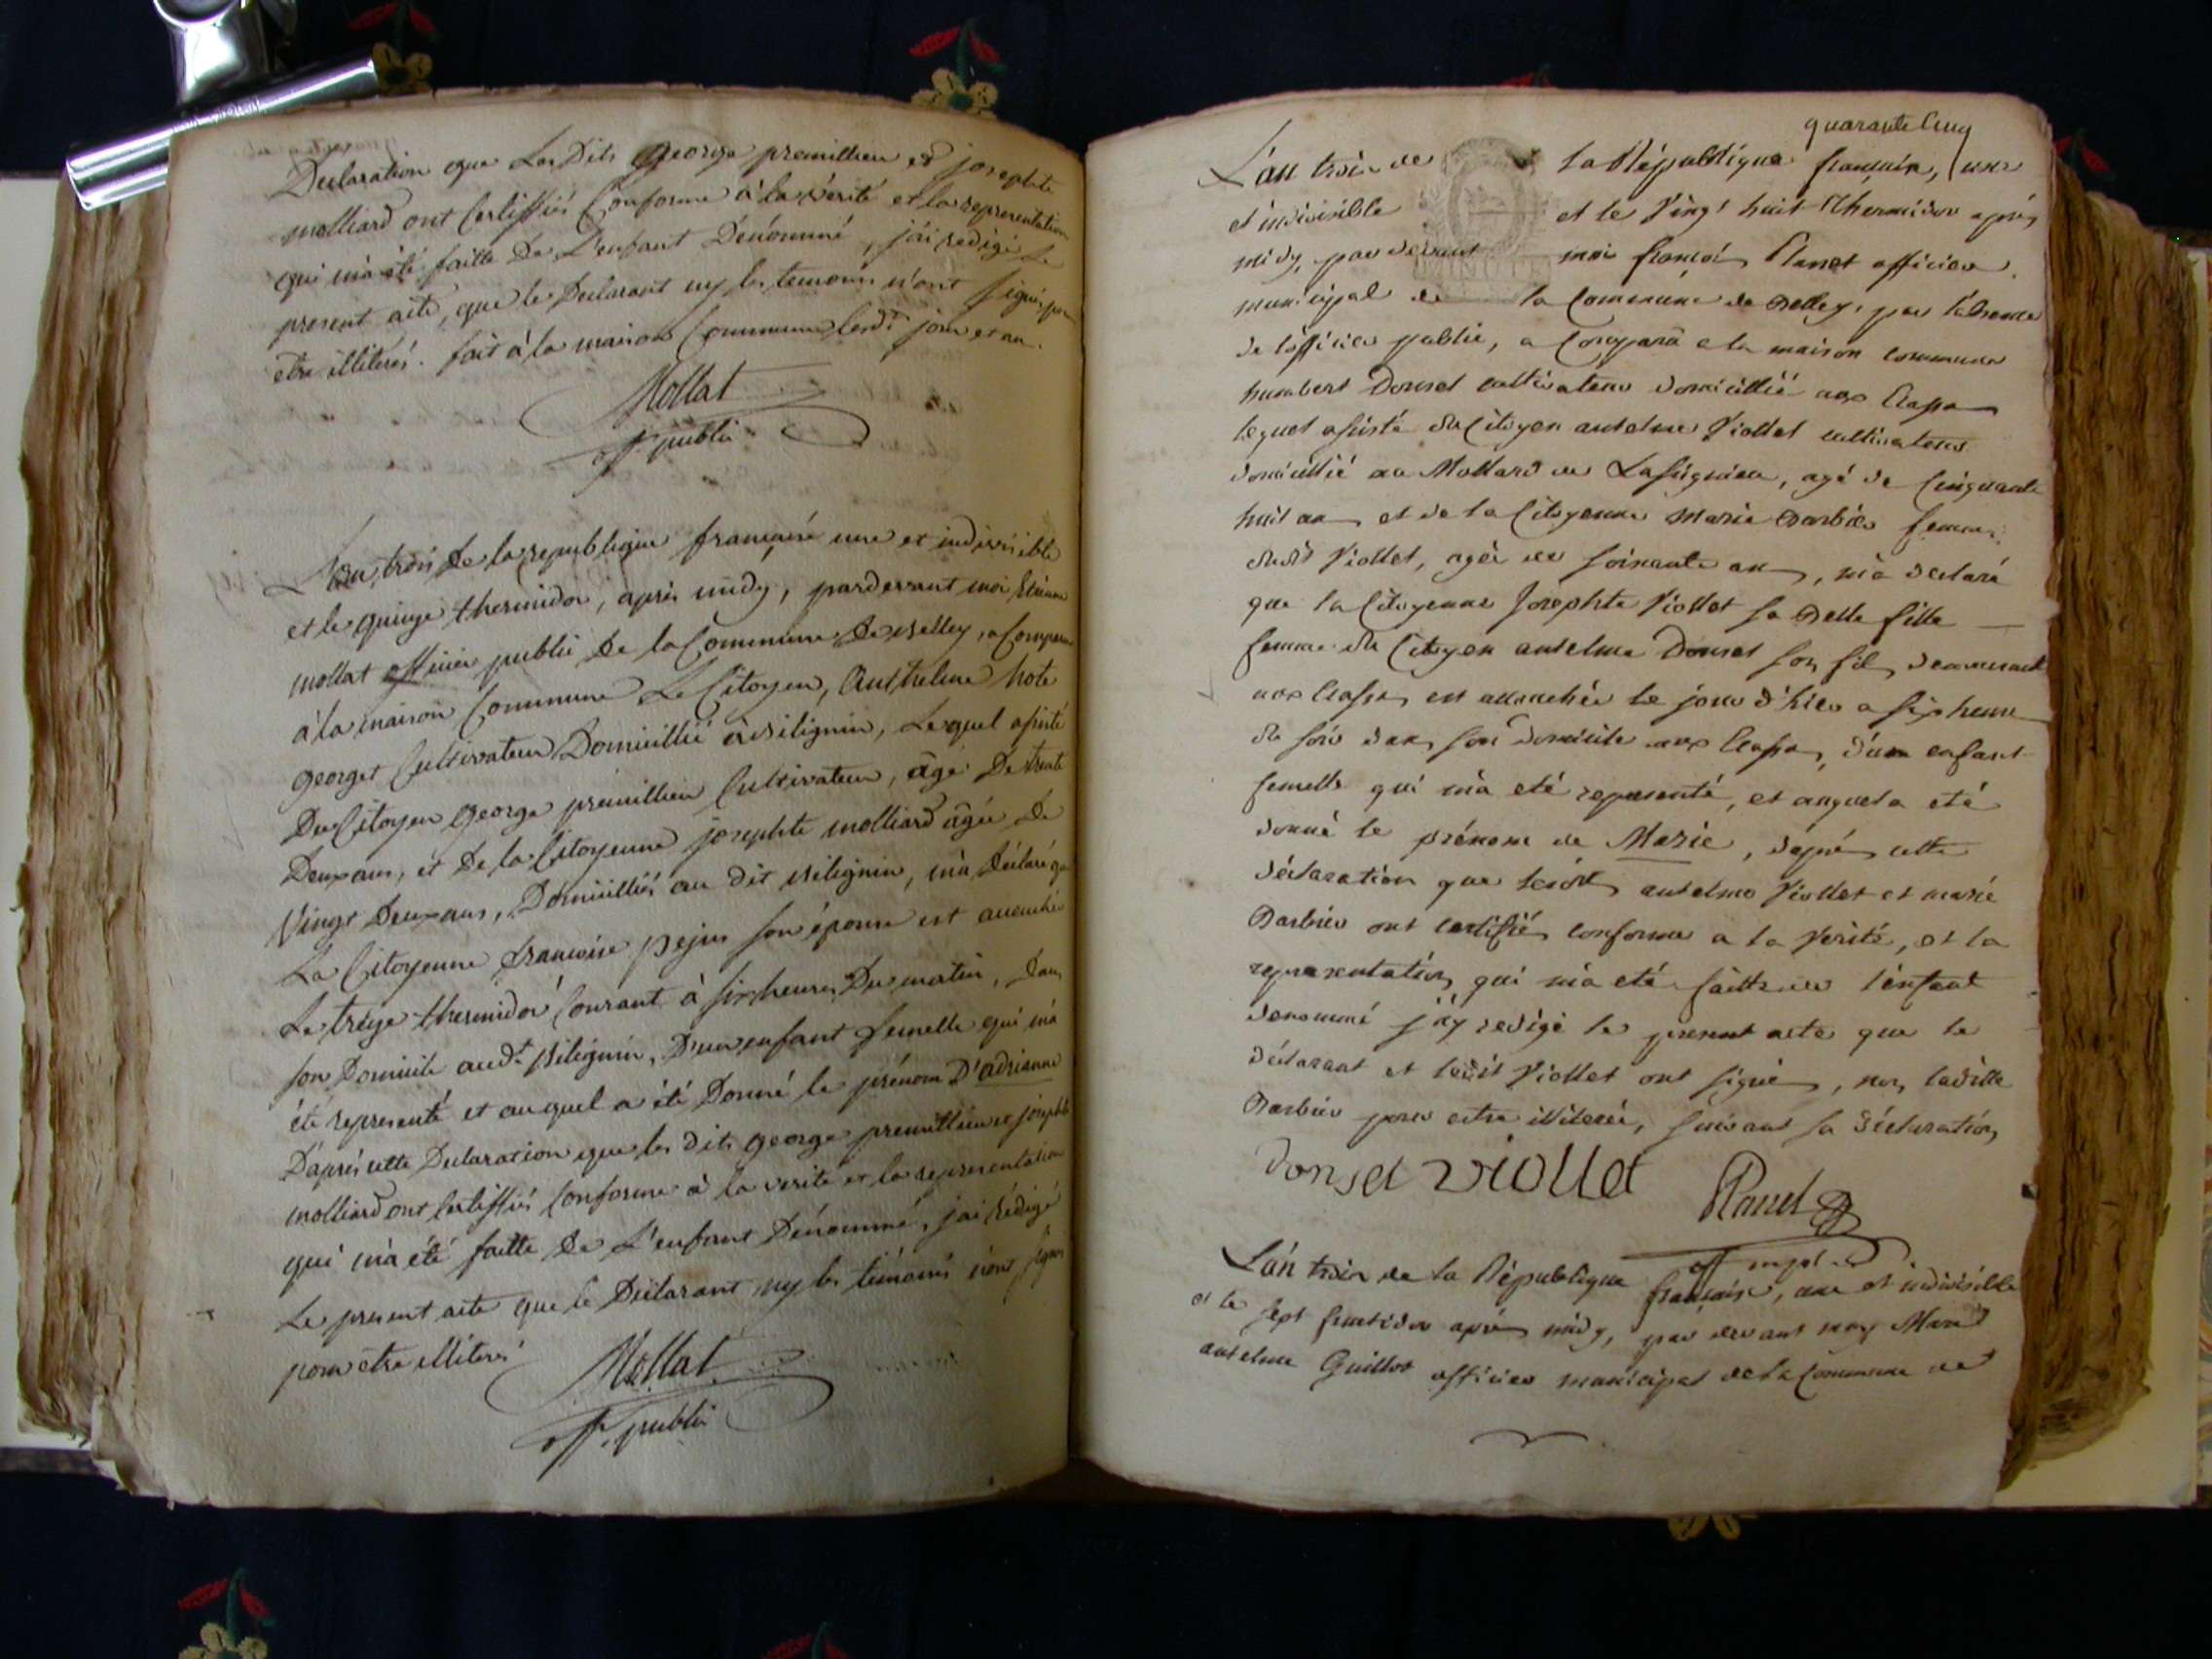 Declaration que Les Dits george premillieu et josephte
molliard ont Certiffiés Conforme à la vérité et la representation
qui m'a été faitte De L'enfant Dénommé, j'ai redigé Le
present acte, que le Declarant ny les temoins n'ont signés pour
etre illiterés. fait à la maison Commune lesdts jour et an.
Mollat
off. public
L'an trois De la republique française une et indivisible
et le quinze thermidor, après midy, pardevant moi Etienne
mollat officier public De la Commune De Belley, a Comparu
à la maison Commune Le Citoyen, Anthelme hote
georget Cultivateur Domicillié à Bilignin, Lequel assisté
Du Citoyen george premillieu Cultivateur, âgé De trente
Deux ans, et De la Citoyenne josephte molliard âgée De
Vingt Deux ans, Domicilliés au dit Bilignin, m'a Déclaré que
La Citoyenne francoise pejus son épouse est accouchée
Le treize thermidor Courant à six heures Du matin, Dans
son Domicile audt Bilignin, D'un enfant femelle qui m'a
été representé et auquel a été Donné le prénom D'adrianne
D'après cette Declaration que les dits george premillieu et josephte
molliard ont Certiffiés Conforme à la verité et la representation
qui m'a été faitte De L'enfant Dénommé, j'ai rédigé
Le present acte que le Déclarant ny les témoins n'ont signés
pour être illiterés
Mollat
off. public
quarante Cinq
L'an trois de la République française, une
et indivisible et le Vingt huit Thermidor après
midy, par devant moi françois Planet officier
municipal de la Commune de Belley, par l'absence
de l'officier public, a Comparu a la maison commune
humbert Donset cultivateur domicillié aux
lequel assisté du Citoyen antelme Viollet cultivateur
domicillié au Mollard de Lassignieu, agé de Cinquante
huit ans et de la Citoyenne Marie Barbier femme
dudit Viollet, agée de soixante ans, m'a declaré
que la Citoyenne Josephte Viollet sa Belle fille
femme du Citoyen antelme Donset son fils demeurant
aux est accouchée le jour d'hier a six heures
du soir dans son domicile aux d'un enfant
femelle qui m'a eté representé, et auquel a eté
donné le prénom de Marie, d'après cette
déclaration que lesdits antelme Viollet et marie
Barbier ont certifiés conforme a la Verité, et la
representation qui m'a eté faitte de l'enfant
denommé j'ay redigé le present acte que le
déclarant et ledit Viollet ont signés, non ladite
Barbier pour estre illiterée, suivant sa déclaration
Donset viollet
Planet
off mpal
L'an trois de la République française, une et indivisible
et le sept fructidor après midy, par devant moy Marc
antelme Guillot officier municipal de la Commune de